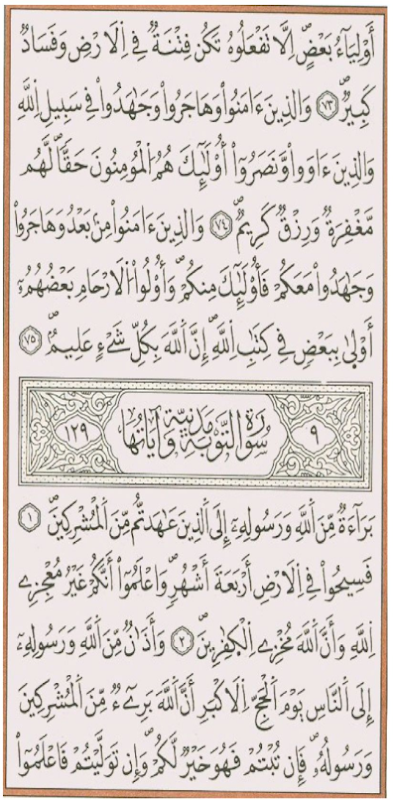 أَوْلِيَآءُ بَعْضٍ اِلَّا تَفْعَلُوهُ تَكُن فِتْنَةٌ فِي اِلَارْضِ وَفَسَادٌ
كَبِيرٌ ٧٣ وَالذِينَ ءَامَنُواْ وَهَاجَرُواْ وَجَٰهَدُواْ فِي سَبِيلِ اِللَّهِ
وَالذِينَ ءَاوَواْ وَّنَصَرُوٓاْ أُوْلَٰٓئِكَ هُمُ اُلْمُومِنُونَ حَقّاً لَّهُم
مَّغْفِرَةٌ وَرِزْقٌ كَرِيمٌ ٧٤ وَالذِينَ ءَامَنُواْ مِنۢ بَعْدُ وَهَاجَرُواْ
وَجَٰهَدُواْ مَعَكُمْ فَأُوْلَٰٓئِكَ مِنكُمْ وَأُوْلُواْ اُلَارْحَامِ بَعْضُهُمُۥٓ
أَوْلَىٰ بِبَعْضٍ فِي كِتَٰبِ اِللَّهِ إِنَّ اَللَّهَ بِكُلِّ شَےْءٍ عَلِيمٌ ٧٥
٩ سُورَةُ التَّوْبَةِ مَدَنِيَّةٌ وَآيَاتُهَا ١٢٩
بَرَآءَةٌ مِّنَ اَللَّهِ وَرَسُولِهِۦٓ إِلَى اَلذِينَ عَٰهَدتُّم مِّنَ اَلْمُشْرِكِينَ ١
فَسِيحُواْ فِي اِلَارْضِ أَرْبَعَةَ أَشْهُرٍ وَاعْلَمُوٓاْ أَنَّكُمْ غَيْرُ مُعْجِزِے
اِللَّهِ وَأَنَّ اَللَّهَ مُخْزِے اِلْكٰ۪فِرِينَ ٢ وَأَذَٰنٌ مِّنَ اَللَّهِ وَرَسُولِهِۦٓ
إِلَى اَلنَّاسِ يَوْمَ اَلْحَجِّ اِلَاكْبَرِ أَنَّ اَللَّهَ بَرِےٓءٌ مِّنَ اَلْمُشْرِكِينَ
وَرَسُولُهُۥ فَإِن تُبْتُمْ فَهُوَ خَيْرٌ لَّكُمْ وَإِن تَوَلَّيْتُمْ فَاعْلَمُوٓاْ